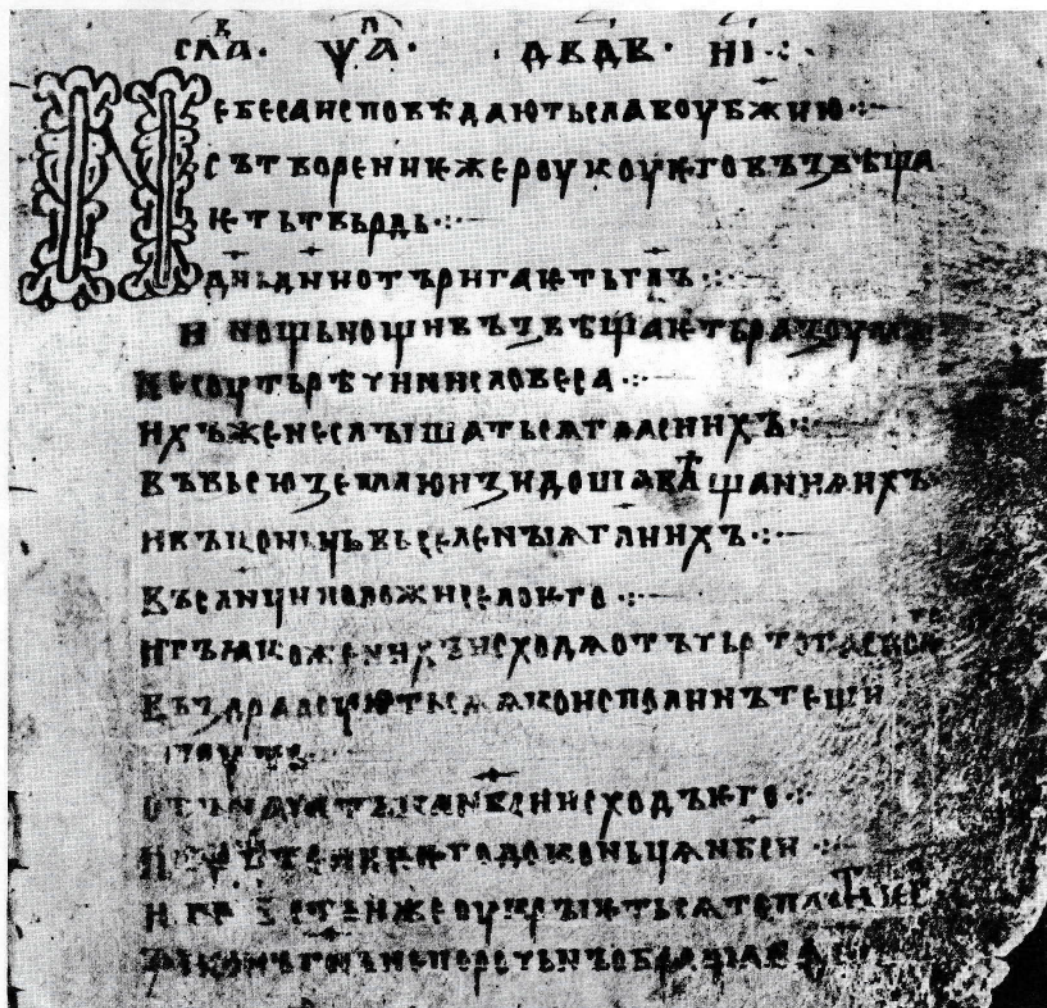 слав҃а· ѱа҃л· двд҃в· и҃і·:·
Небесаисповѣдаютьславоубжию·:·
сътворениѥжероукоуѥговъзвѣща
ѥтьтвьрдь·:·
днь дни отъригаѥтьглъ·:·
и нощьнощивъзвѣщаѥть
несоутьрѣчинисловеса·:·
ихъженеслышатьсѧгласиихъ·:·
въвьсюземлюизидошѧвѣщаниꙗихъ
ивъконьць вьселеныѧглиихъ·:·
въсълньциположиселоѥго·:·
итъꙗкоженихъисходѧотъ
въздрадоуѥтьсѧꙗкоисполинътещи
поуть
отъ исходъѥго·:·
ѥгодоконьцѧнбси·:·
иже оукрыѥтьсѧ
законъгньнепорочьнъобращаꙗ